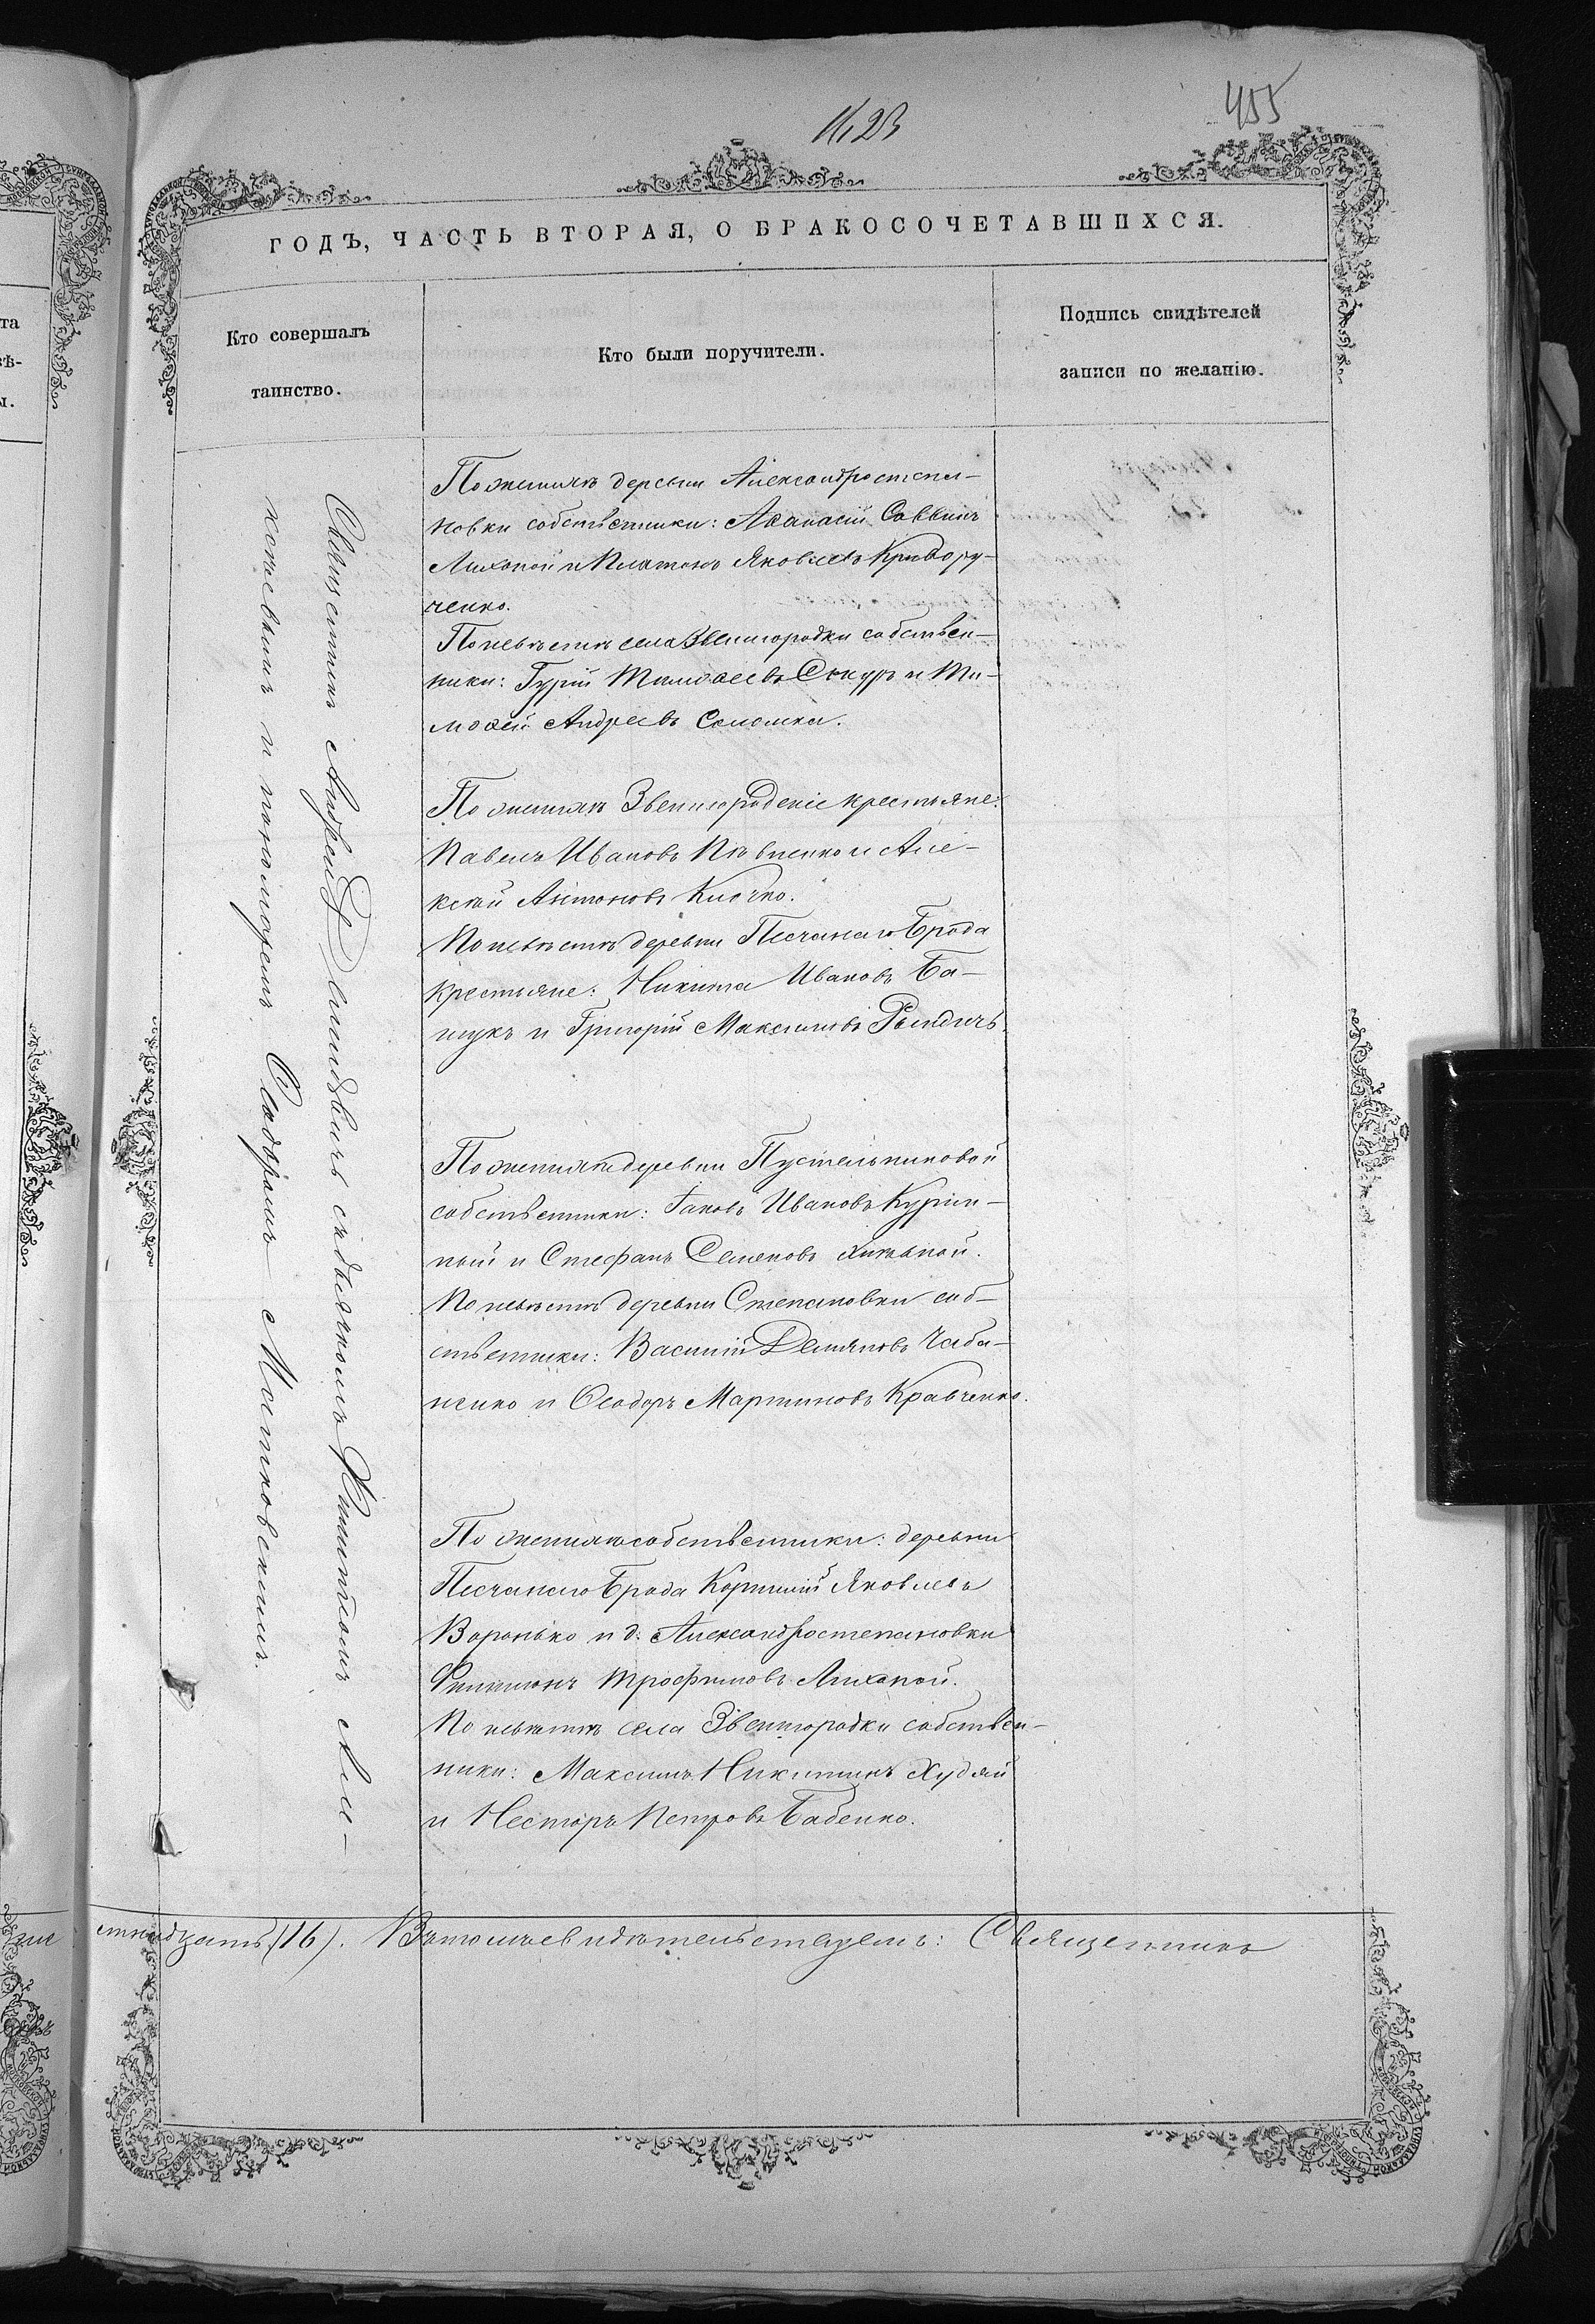 455
ГОДЪ, ЧАСТЬ ВТОРАЯ, О БРАКОСОЧЕТАВШИХСЯ.
Кто совершалъ
таинство.
Кто были поручители.
Подпись свидѣтелей
записи по желанію.
Священникъ Андрей съ дьячкомъ
и пономаремъ Ѳеодоромъ
По женихѣ деревни Александростепа-
новки собственники: Аѳанасій Саввинъ
Лихопой и Платонъ Яковлевъ Кривору-
ченко.
По невѣстѣ села Звенигородки собствен-
ники: Гурій Тимоѳеевъ и Ти-
моѳей Андреевъ
По женихѣ Звенигородскіе крестьяне:
Павелъ Ивановъ Пѣвненко и Але-
ксѣй Антоновъ Клочко.
По невѣстѣ деревни Песчанаго Брода
крестьяне: Никита Ивановъ Ба-
щукъ и Григорій Максимовъ
По женихѣ деревни Пустельниковой
собственники: Іаковъ Ивановъ Курин-
ный и Стефанъ Семеновъ
По невѣстѣ деревни Степановки соб-
ственники: Василій Демяновъ Чаба-
ненко и Ѳеодоръ Мартиновъ Кравченко.
По женихѣ собственники: деревни
Песчанаго Брода Корнилій Яковлевъ
Воронько и д. Александростепановки
Филимонъ Трофимовъ Лихопой.
По невѣстѣ села Звенигородки собствен-
ники: Максимъ Никитинъ Худяй
и Несторъ Петровъ Бабенко.
стнадцать (16). Въ томъ свидѣтельствуемъ: Священникъ